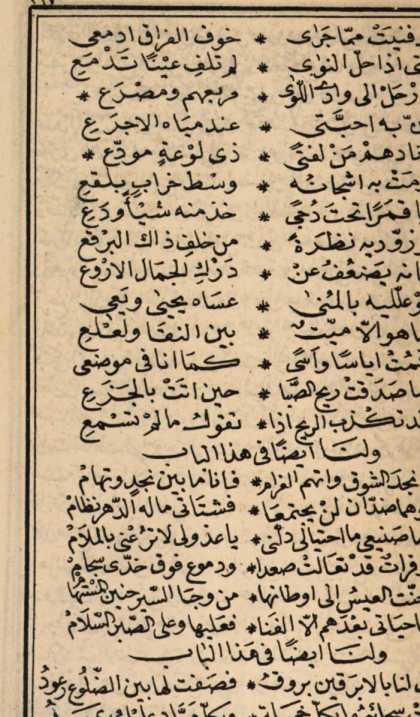 فنيتْ ممّا جرٰى * خوف الفراق ادمعي
اذا حلّ النوٰى * لم تلف عينًا تدْمَعِ
رْحَلْ الى وادى اللّوٰى * مربعهم ومصْرَعِ *
به احبّتى * عند مياه الاجرَعِ
نادهمْ مَنْ لفتىً * ذى لوْعةٍ مودّعِ *
متْ به اشجانه * وسْط خرابٍ بلقعِ
قمرًا تحتَ دُجىً * خذ منه شيئًا ودَعِ
زوّديه نظرَةً * من خلفِ ذاك البرْقعِ
انه يضعُفُ عنْ * دَرْكِ الجمال الارْوعِ
وعلّليه بالمنىٰ * عساه يحيىٰ ويعى
ما هو الاّ ميّتٌ * بين النقا ولعْلعِ
متُّ اياسًا واَسًى * كما انا فى موضعى
ما صدَقتْ ريح الصّبا * حين اتتْ بالخدَعِ
قد تكذب الريح اذا * تقول ما لمْ تسْمعِ
ولنا ايضًا فى هذا الباب
نجد الشوق واتهم الغرام * فانا ما بين نجدٍ وتهامْ
وهما ضدّان لنْ يجتمعَا * فشتاتى ماله الدّهر نظامْ
ما صنيعى ما احتيالى دلّنى * يا عذولى لا ترُعْنى بالملامْ
زفراتٌ قد تعالتْ صعدا * ودموع فوق خدّى سجامْ
حنّت العيسُ الى اوطانها * من وجا السّير حنين المستهامْ
ما حياتى بعدهم الاّ الفنا * فعليها وعلى الصّبر السّلامْ
ولنا ايضًا فى هذا الباب
لنا بالابرقين بروقُ * قصفت لها بين الضّلوع رعودُ